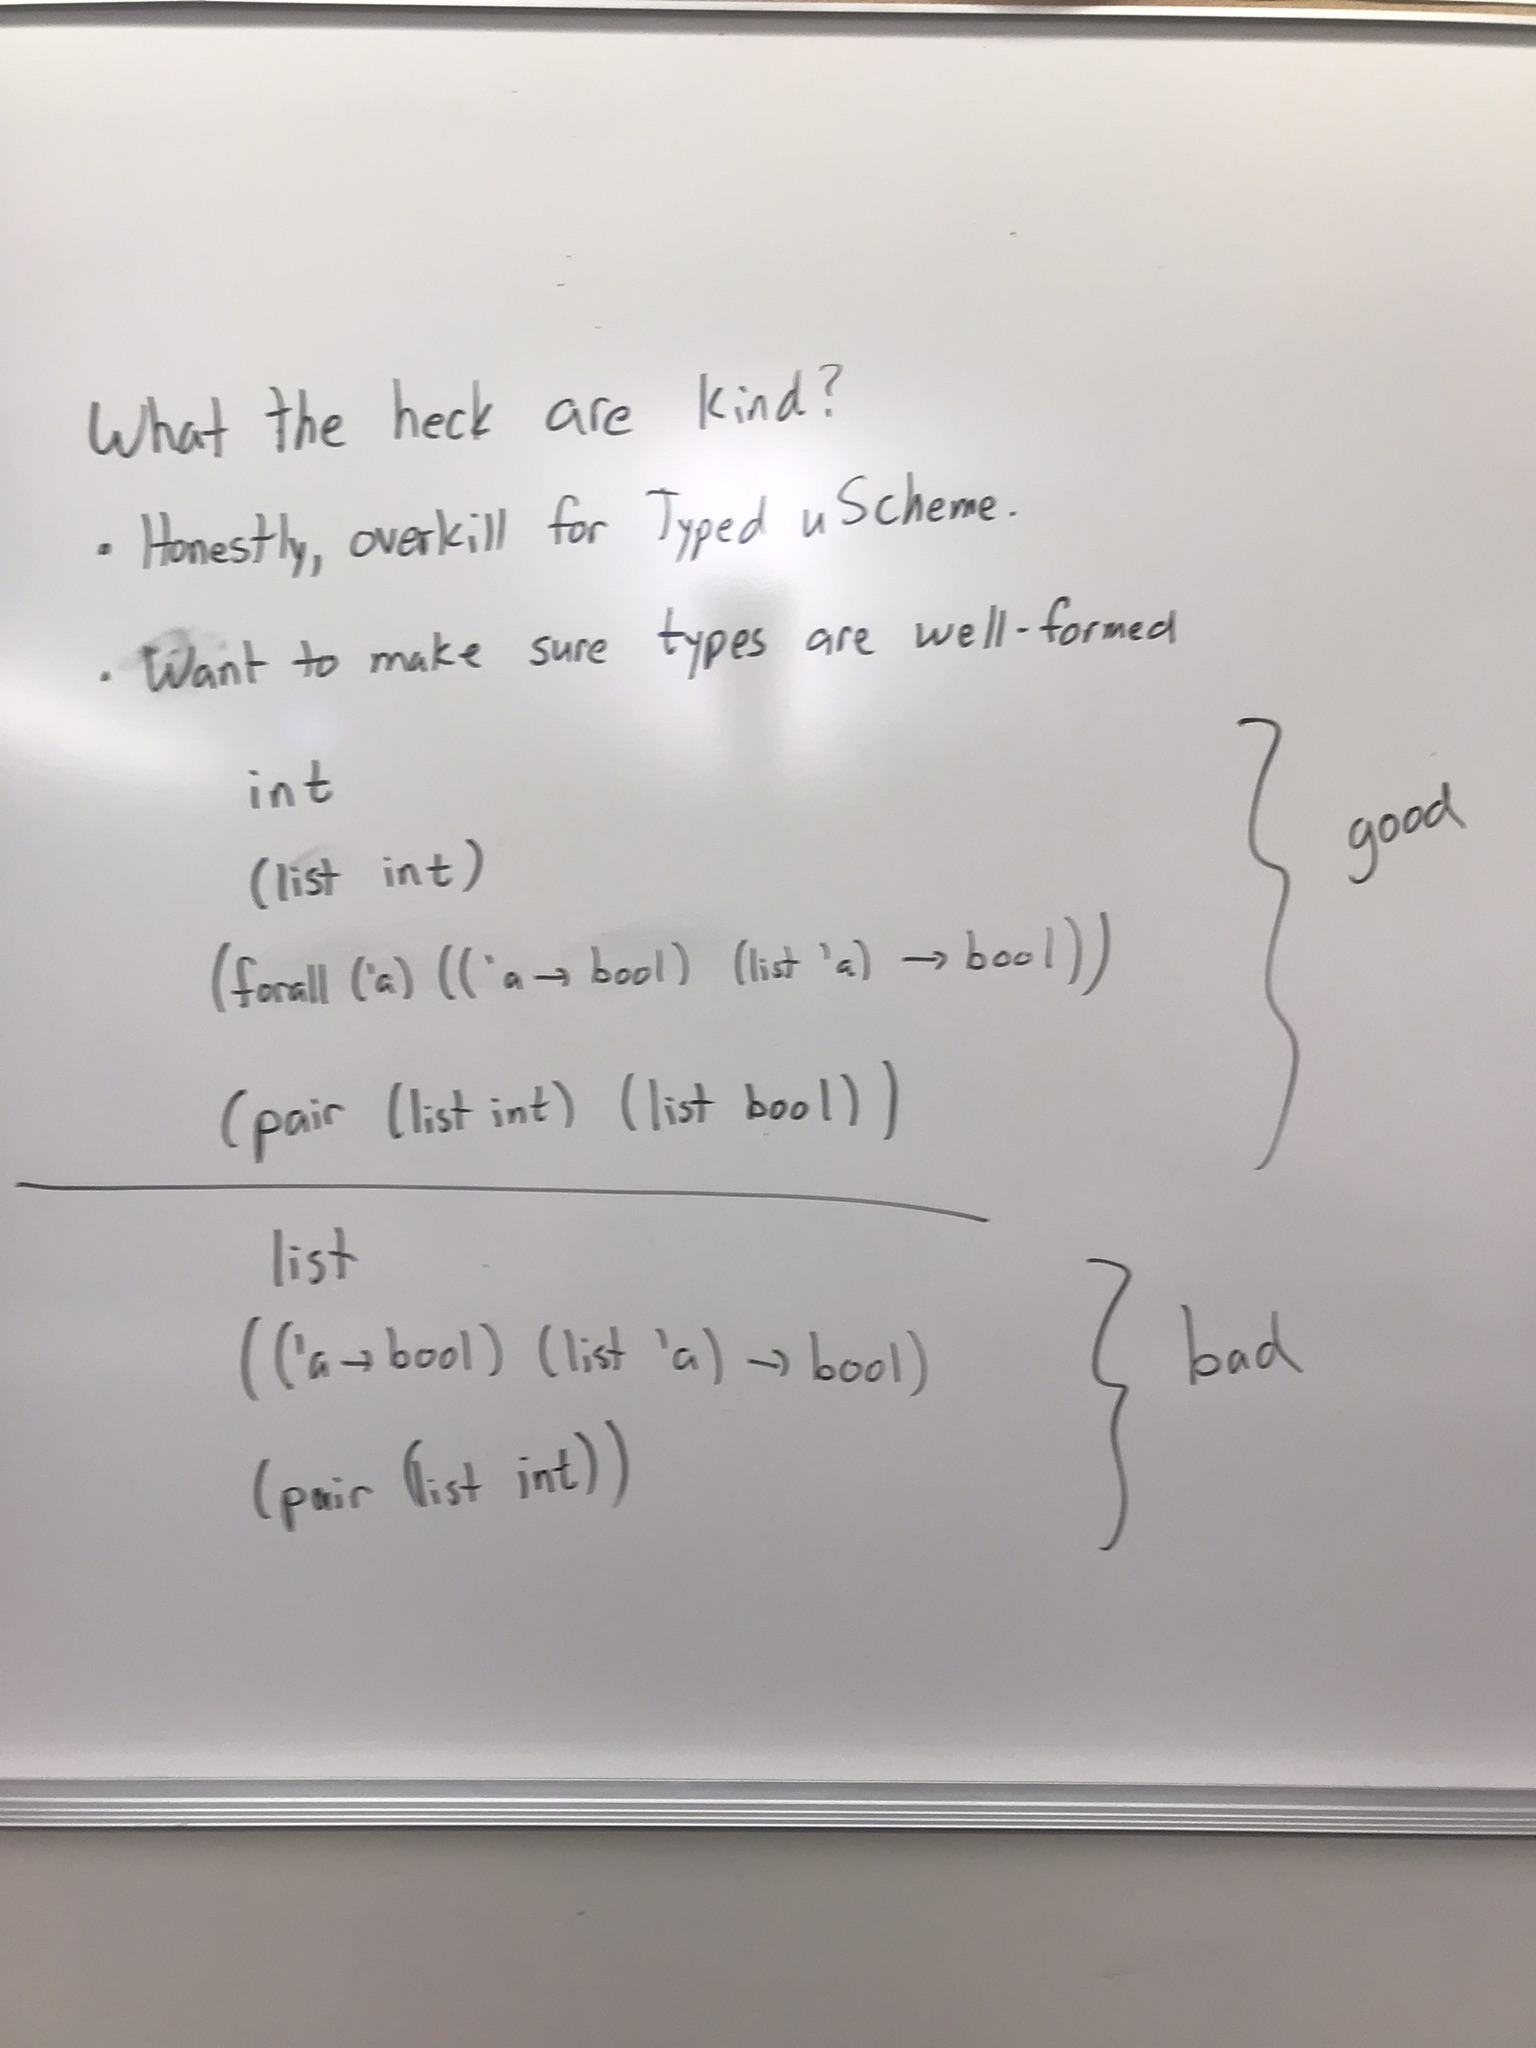 What the heck are kind?
• Honestly, overkill for Typed uScheme.
• Want to make sure types are well-formed
int
(list int)
(forall ('a) (('a → bool) (list 'a) → bool))
(pair (list int) (list bool))
good
list
(('a → bool) (list 'a) → bool)
(pair (list int))
bad